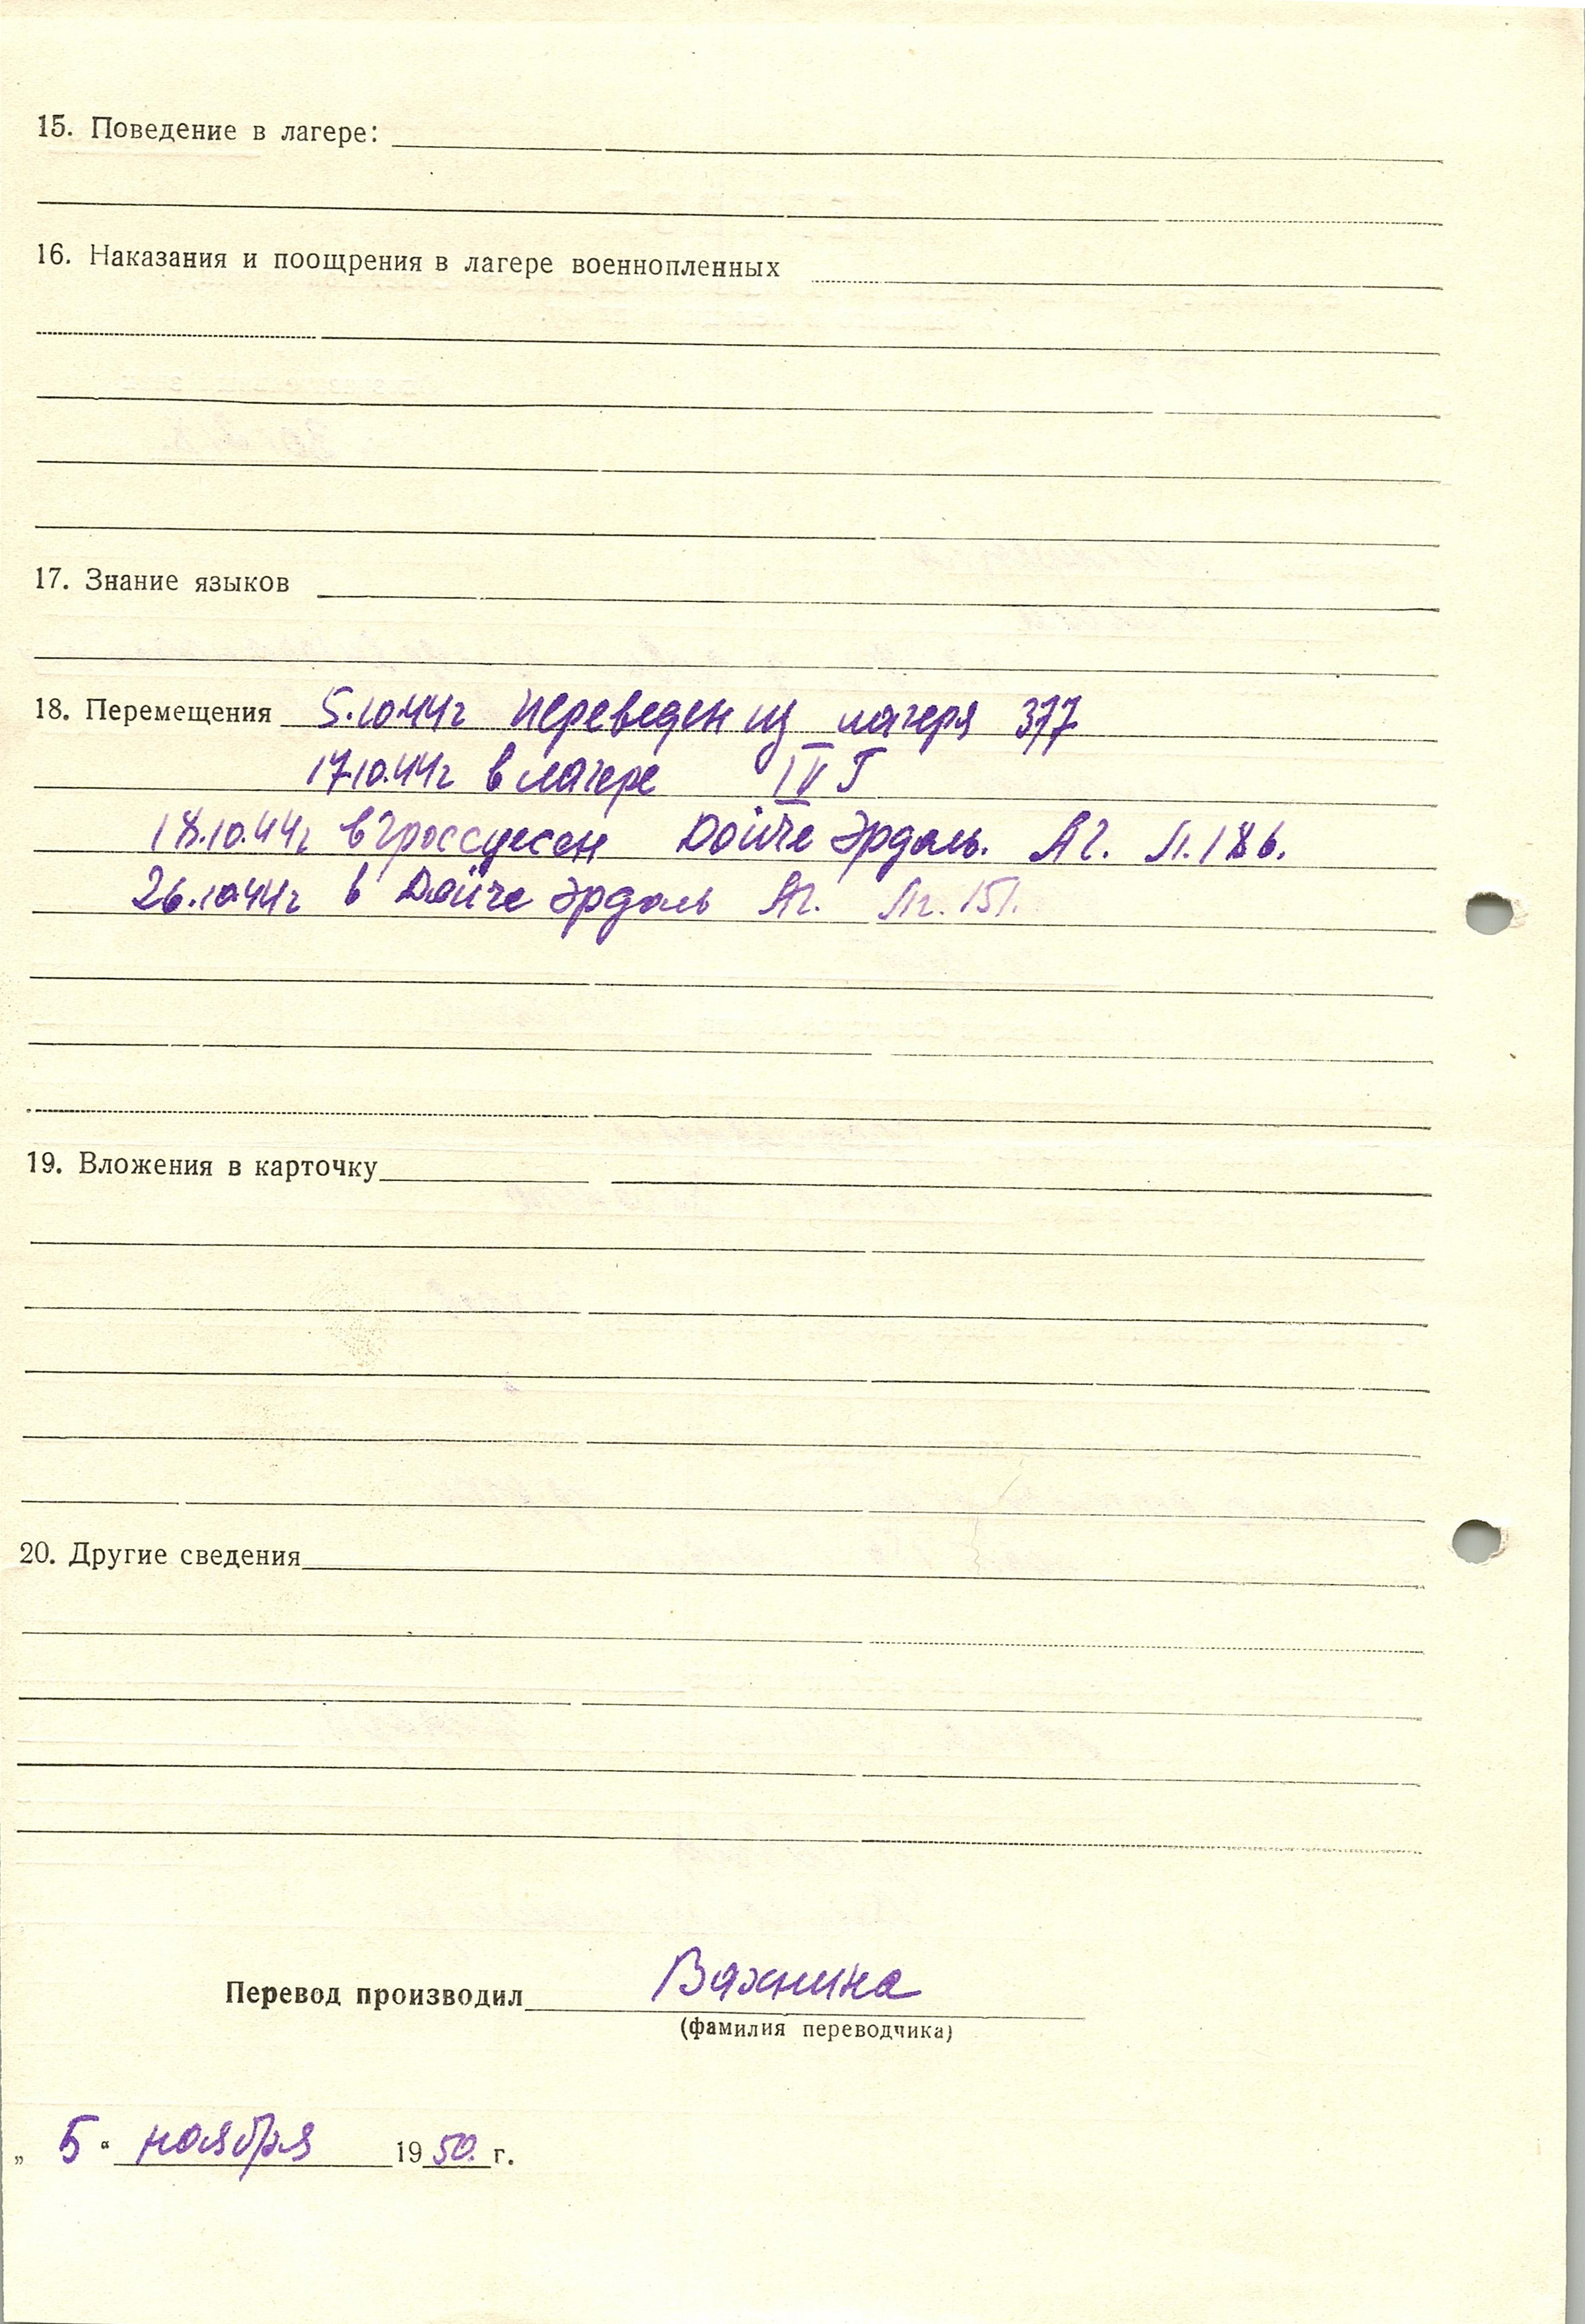 15. Поведение в лагере:
16. Наказания и поощрения в лагере военнопленных
17. Знание языков
18. Перемещения 5.10.44г переведен из лагеря 377
17.10.44г в лагере IV Г
18.10.44г в Гроссцесен Дойче Эрдоль. АГ. Л. 186.
26.10.44г в Дойче Эрдоль АГ. Лг. 151.
19. Вложения в карточку
20. Другие сведения
Перевод производил Вахнина
(фамилия переводчика)
„ 5 “ ноября 1950. г.